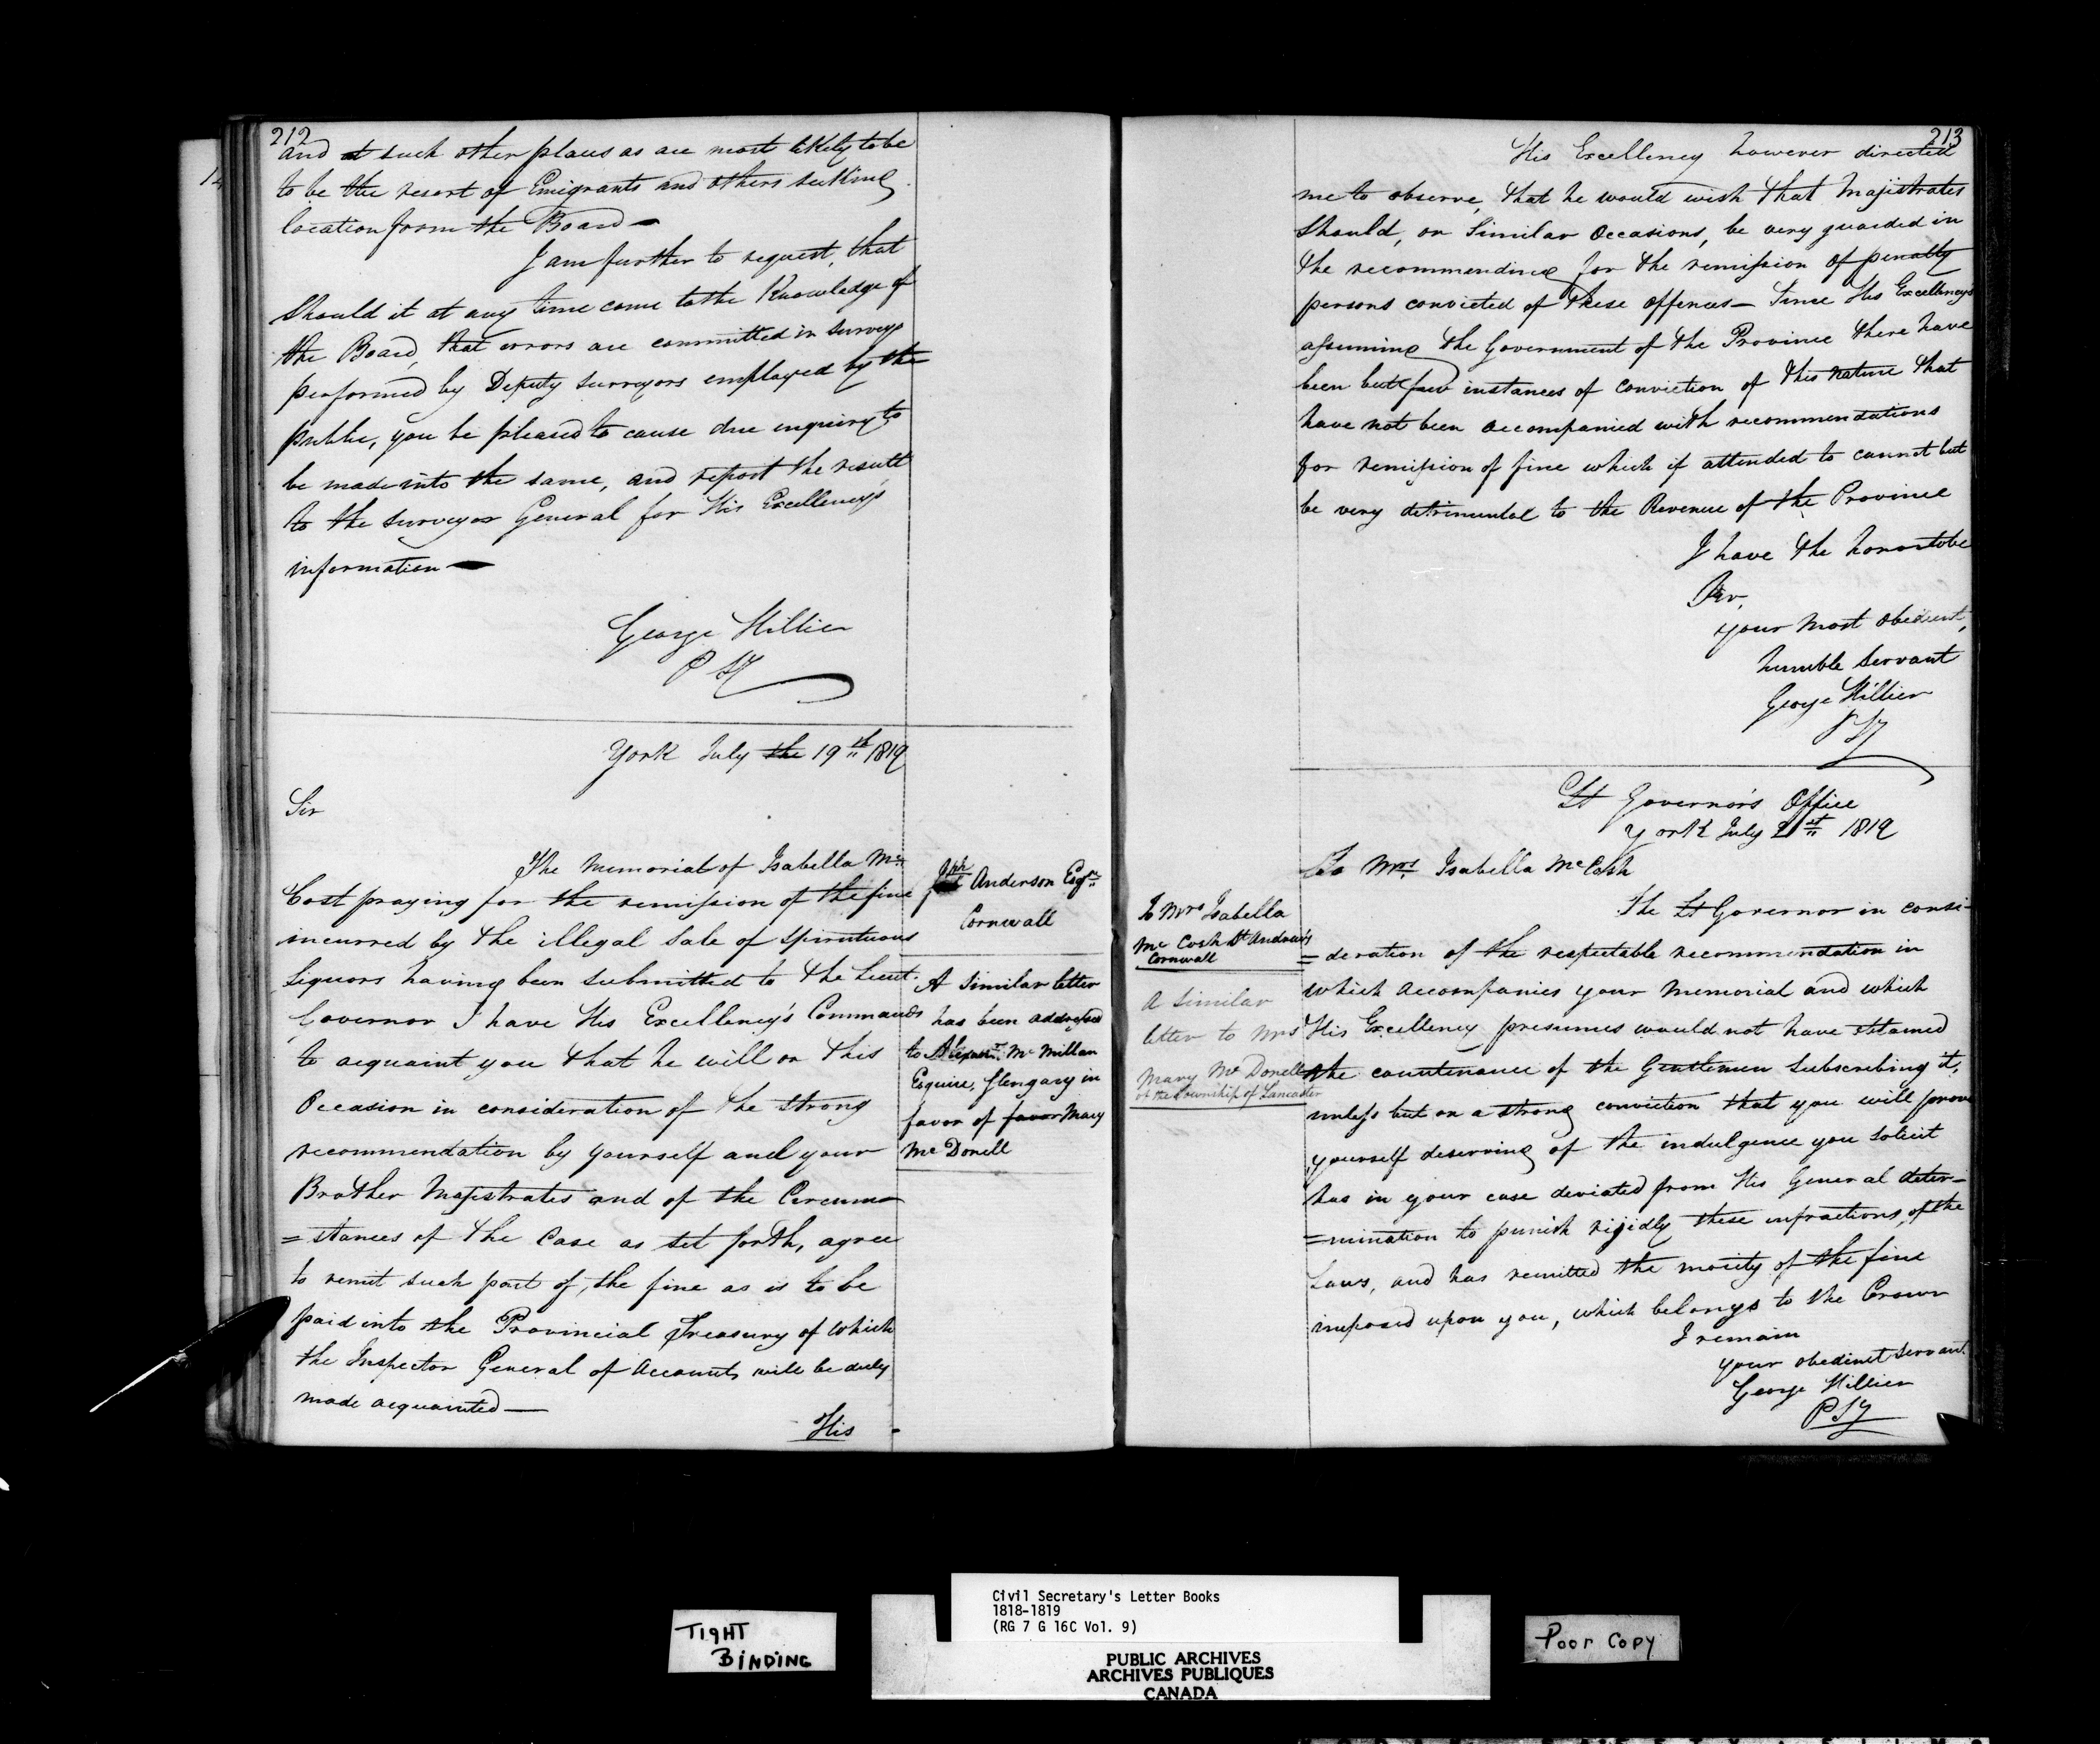 212
and at such other places as are most likely to be
to be the resort of Emigrants and others seeking
location from the Board—
I am further to request, that
should it at any time come to the Knowledge of
the Board, that errors are committed in surveys
performed by Deputy Surveyors employed by the
public, you be pleased to cause due inquiry to
be made into the same, and report the result
to the Surveyor General for His Excellency's
information—
George Hillier
P Sy
York July the 19th 1819
Sir
The Memorial of Isabella Mc
Cost praying for the remission of the fine
incurred by the illegal Sale of Spirituous
Liquors having been submitted to the Lieut.
Governor I have His Excellency's Commands
to acquaint you that he will on this
Occasion in consideration of the strong
recommendation by yourself and your
Brother Majistrates and of the Circum
=stances of the Case as set forth, agree
to remit such part of, the fine as is to be
paid into the Provincial Treasury of which
the Inspector General of Accounts will be duly
made acquainted—
His
Jph Anderson Esqre
Cornwall
A Similar letter
has been addressed
to Alexanr. Mc Millan
Esquire, Glengary in
favor of favor Mary
Mc Donell
213
His Excellency however directed
me to observe, that he would wish that Majistrates
should, on Similar Occasions, be very guarded in
the recommending for the remission of penalty
persons convicted of these offences— Since His Excellencys
assuming the Government of the Province there have
been but few instances of conviction of this nature that
have not been accompanied with recommendations
for remission of fine which if attended to cannot but
be very detrimental to the Revenue of the Province
I have the honor to be
Sir,
your most obedient,
humble Servant
George Hillier
P Sy
Lt Governor's Office
York July 21st 1819
To Mrs. Isabella Mc Cosh
The Lt Governor in consi-
=deration of the respectable recommendation in
which accompanies your Memorial and which
His Excellency presumes would not have obtained
the countenance of the Gentlemen Subscribing it,
unless but on a strong conviction that you will prove
yourself deserving of the indulgence you solicit
has in your case deviated from His General deter-
=mination to punish rijidly these infractions, of the
Laws, and has remitted the moiety of the fine
imposed upon you, which belongs to the Crown
I remain
your obedinet Servant.
George Hillier
P Sy
To Mrs Isabella
Mc Cosh St Andrew's
Cornwall
A Similar
letter to Mrs
Mary Mc Donell
of the Township of Lancaster
TIGHT
BINDING
Civil Secretary's Letter Books
1818-1819
(RG 7 G 16C Vol. 9)
PUBLIC ARCHIVES
ARCHIVES PUBLIQUES
CANADA
Poor Copy